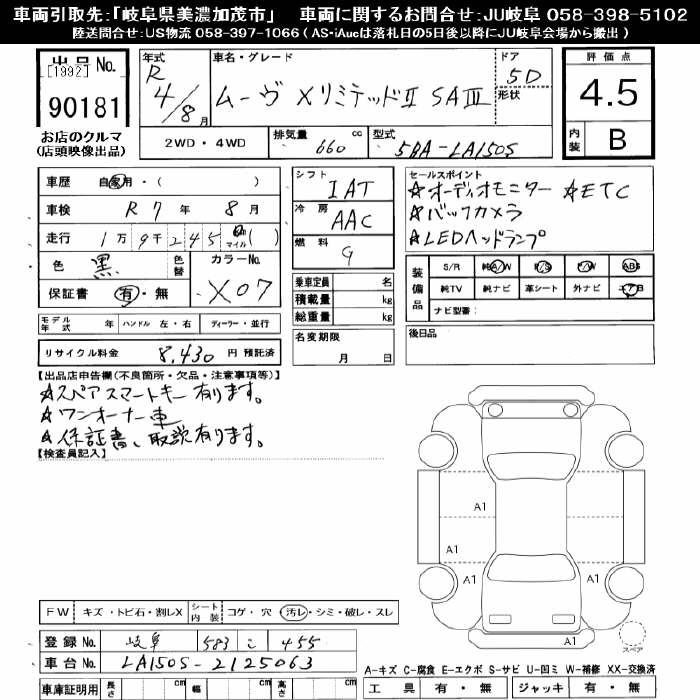 車両引取先:「岐阜県美濃加茂市」 車両に関するお問合せ:JU岐阜 058-398-5102
陸送問合せ:US物流 058-397-1066 ( AS・iAucは落札日の5日後以降にJU岐阜会場から搬出 )
出品No.
[1992]
90181
お店のクルマ
(店頭映像出品)
年式
R
4/8月
車名・グレード
ムーヴ XリミテッドⅡ SAⅢ
ドア
5D
形状
2WD・4WD
排気量 660 cc
型式 5BA-LA150S
評価点
4.5
内装 B
車歴 自家用・( )
車検 R7年 8月
走行 1万9千245 Km マイル ( )
色 黒 色替 カラーNo. X07
保証書 有・無
モデル年式 年 ハンドル 左・右 ディーラー・並行
リサイクル料金 8,430 円 預託済
シフト IAT
冷房 AAC
燃料 G
乗車定員 名
積載量 kg
総重量 kg
名変期限
月 日
セールスポイント
☆オーディオモニター ☆ETC
☆バックカメラ
☆LEDヘッドランプ
装備品
S/R 純A/W P/S P/W ABS
純TV 純ナビ 革シート 外ナビ エアB
ナビ型番:
後日品
【出品店申告欄(不良箇所・欠品・注意事項等)】
☆スペアスマートキー有ります。
☆ワンオーナー車
☆保証書、取説有ります。
【検査員記入】
A1
A1
A1
スペア
FW キズ・トビ石・割レX シート内装 コゲ・穴 汚レ・シミ・破レ・スレ
登録No. 岐阜 583 こ 455
車台No. LA150S-2125063
車庫証明用 長さ cm 幅 cm 高さ cm
A-キズ C-腐食 E-エクボ S-サビ U-凹ミ W-補修 XX-交換済
工具 有・無 ジャッキ 有・無